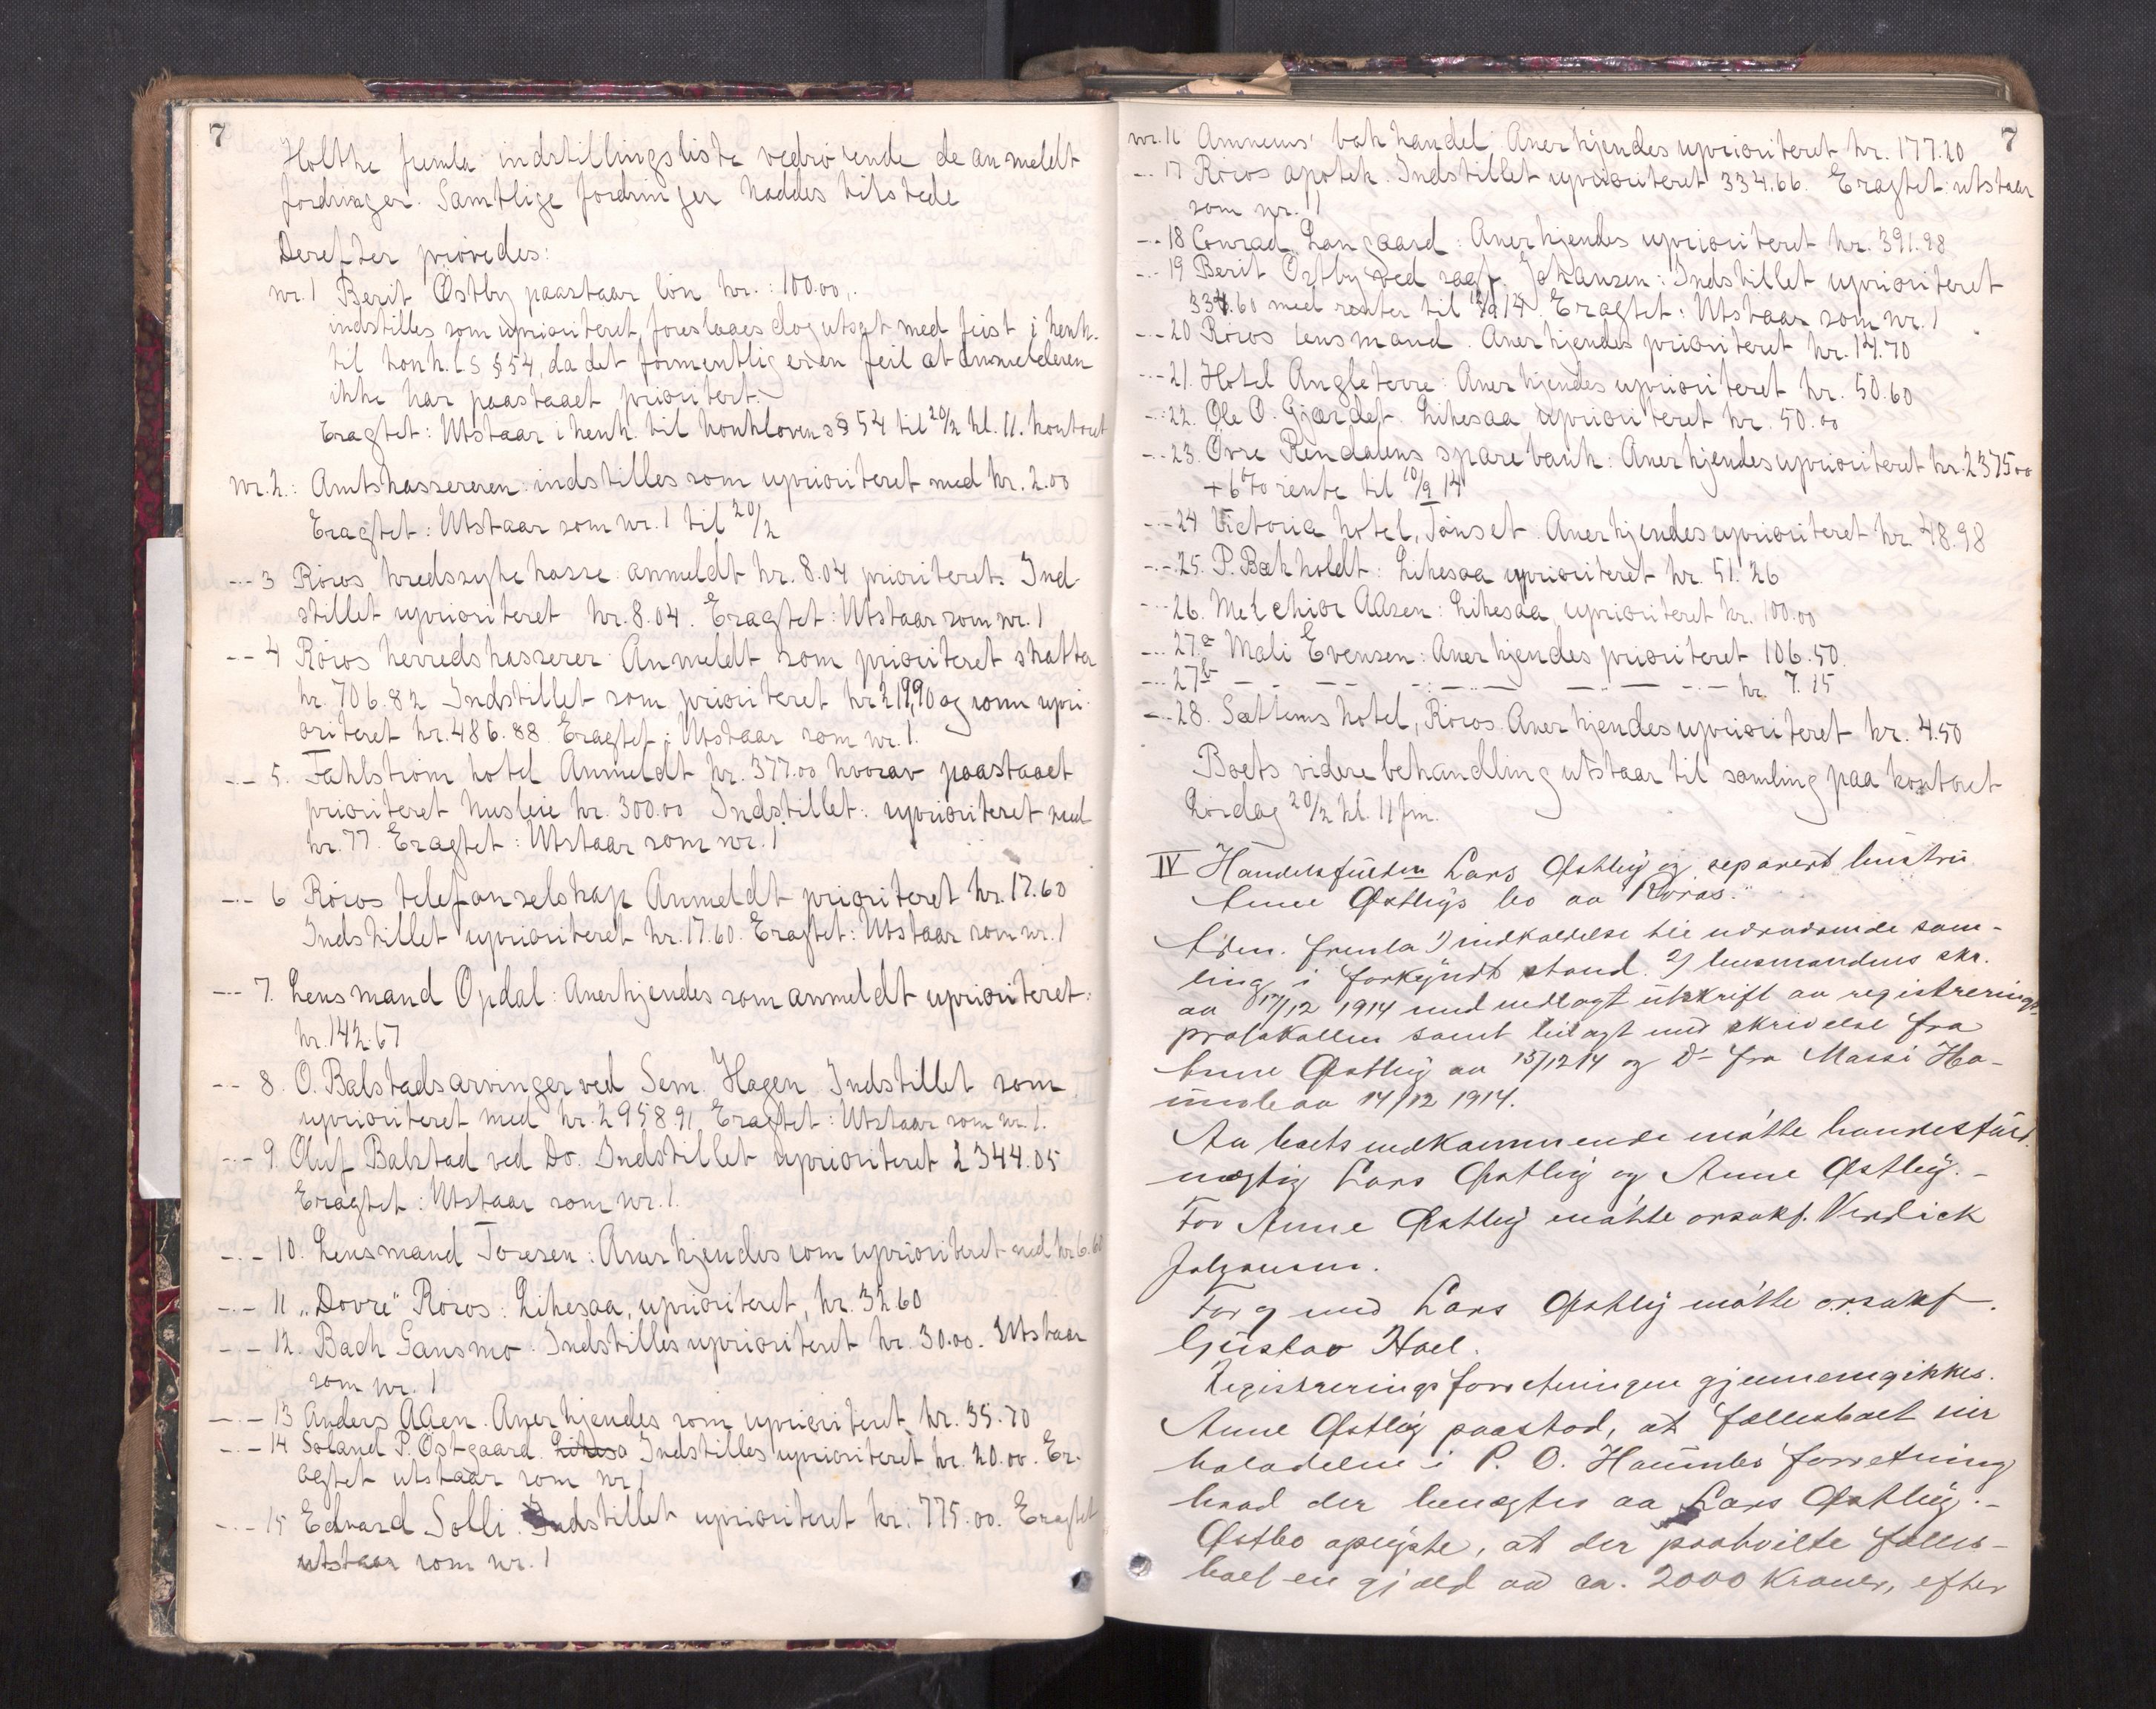 7
Holthe fremla indstillingsliste vedrörende de anmeldt
fordringer. Samtlige fordringer haddes tilstede
Derefter prövedes:
nr. 1 Berit Østby paastaar lön kr.: 100.00,.
indstilles som uprioriteret, foreslaaes dog utsat med frist i henh.
til konk.l s § 54, da det formentlig er en feil at anmelderen
ikke har paastaaet prioritert.
Eragtet: Utstaar i henh. til konklovens § 54 til 20/2 kl. 11. kontoret
nr. 2.: Amtskassereren: indstilles som uprioriteret med kr. 2.00
Eragtet: Utstaar som nr. 1 til 20/2
-- 3 Röros kredssykekasse: anmeldt kr. 8.04 prioriteret. Ind-
stillet uprioriteret kr. 8.04. Eragtet: Utstaar som nr. 1
-- 4 Röros herredskasserer: Anmeldt som prioriteret skatter
kr. 706.82 Indstillet som prioriteret kr 219,90 og som upri-
oriteret kr. 486.88. Eragtet: Utstaar som nr. 1.
-- 5. Fahlström hotel Anmeldt kr. 377.00 hvorav paastaaet
prioriteret husleie kr. 300.00 Indstillet: uprioriteret med
kr. 77. Eragtet: Utstaar som nr. 1
-- 6 Röros telefonselskap Anmeldt prioriteret kr. 17.60
Indstillet uprioriteret kr. 17.60. Eragtet: Utstaar som nr. 1
-- 7. Lensmand Opdal: Anerkjendes som anmeldt uprioriteret:
kr. 142.67
-- 8. O. Balstads arvinger ved Sem. Hagen Indstillet som
uprioriteret med kr. 2958.91 Eragtet: Utstaar som nr. 1.
-- 9. Oluf Balstad ved Do. Indstillet uprioriteret 2344.05
Eragtet: Utstaar som nr. 1.
-- 10. Lensmand Toresen: Anerkjendes som uprioriteret med kr 6.60
-- 11 "Dovre" Röros: Likesaa, uprioriteret, kr. 32.60
-- 12. Bach Gansmo. Indstilles uprioriteret kr. 30.00. Utstaar
som nr. 1
-- 13 Anders Aaen. Anerkjendes som uprioriteret kr. 35.70
-- 14 Soland P. Östgaard. Likesa Indstilles uprioriteret kr. 20.00. Er-
agtet utstaar som nr 1
-- 15 Edvard Solli. Indstillet uprioriteret kr. 775.00. Eragtet
utstaar som nr. 1
7
nr. 16 Amneus' bokhandel. Anerkjendes uprioriteret kr. 177.20
-- 17 Röros apotek. Indstillet uprioriteret 334.66. Eragtet: utstaar
som nr. 1
-- 18 Conrad Langaard: Anerkjendes uprioriteret kr. 391.98
-- 19 Berit Östby ved sagf. Johansen: Indstillet uprioriteret
334.60 med renter til 12/9 14. Eragtet: Utstaar som nr. 1
-- 20 Röros lensmand. Anerkjendes prioriteret kr. 14.70
-- 21. Hotel Angleterre: Anerkjendes uprioriteret kr. 50.60
-- 22. Ole O. Gjærdet. Likesaa uprioriteret kr. 50.00
-- 23. Övre Rendalens sparebank: Anerkjendes uprioriteret kr. 2375.00
+ 6 % rente til 10/9 14
-- 24 Victoria hotel, Tönset. Anerkjendes uprioriteret kr. 48.98
-- 25. P. Bækholdt: Likesaa uprioriteret kr. 51.26
-- 26. Melchior Aasen: Likesaa uprioriteret kr. 100.00
-- 27a Mali Evensen: Anerkjendes prioriteret 106.50.
-- 27b – – – – – – – kr. 7.15
-- 28. Sættems hotel, Röros. Anerkjendes uprioriteret kr. 4.50
Boets videre behandling utstaar til samling paa kontoret
Lördag 20/2 kl. 11 fm.
IV Handelsfuldm Lars Østby og separert hustru
Anne Østby's bo av Röros."
Adm. fremla 1) indkaldelse til nærværende sam-
ling i forkyndt stand. 2) lensmandens skr.
av 17/12 1914 med vedlagt utskrift av registrerings-
protokollen samt bilagt med skrivelse fra
Anne Østby av 15/12 14 og Do fra Massi Ha-
av 14/12 1914.
Av boets vedkommende mötte handelsfuld-
mægtig Lars Østby og Anne Østby. -
For Anne Østby mötte orsakf.
For og med Lars Østby mötte orsakf.
Gustav Hoel.
Registreringsforretningen gjennemgikkes.
Anne Østby paastod, at fællesboet eier
i P. O. forretning
hvad der benegtes av Lars Østby. -
Østby oplyste, at der paahvilte fælles-
boet en gjæld av ca. 2000 kroner, efter